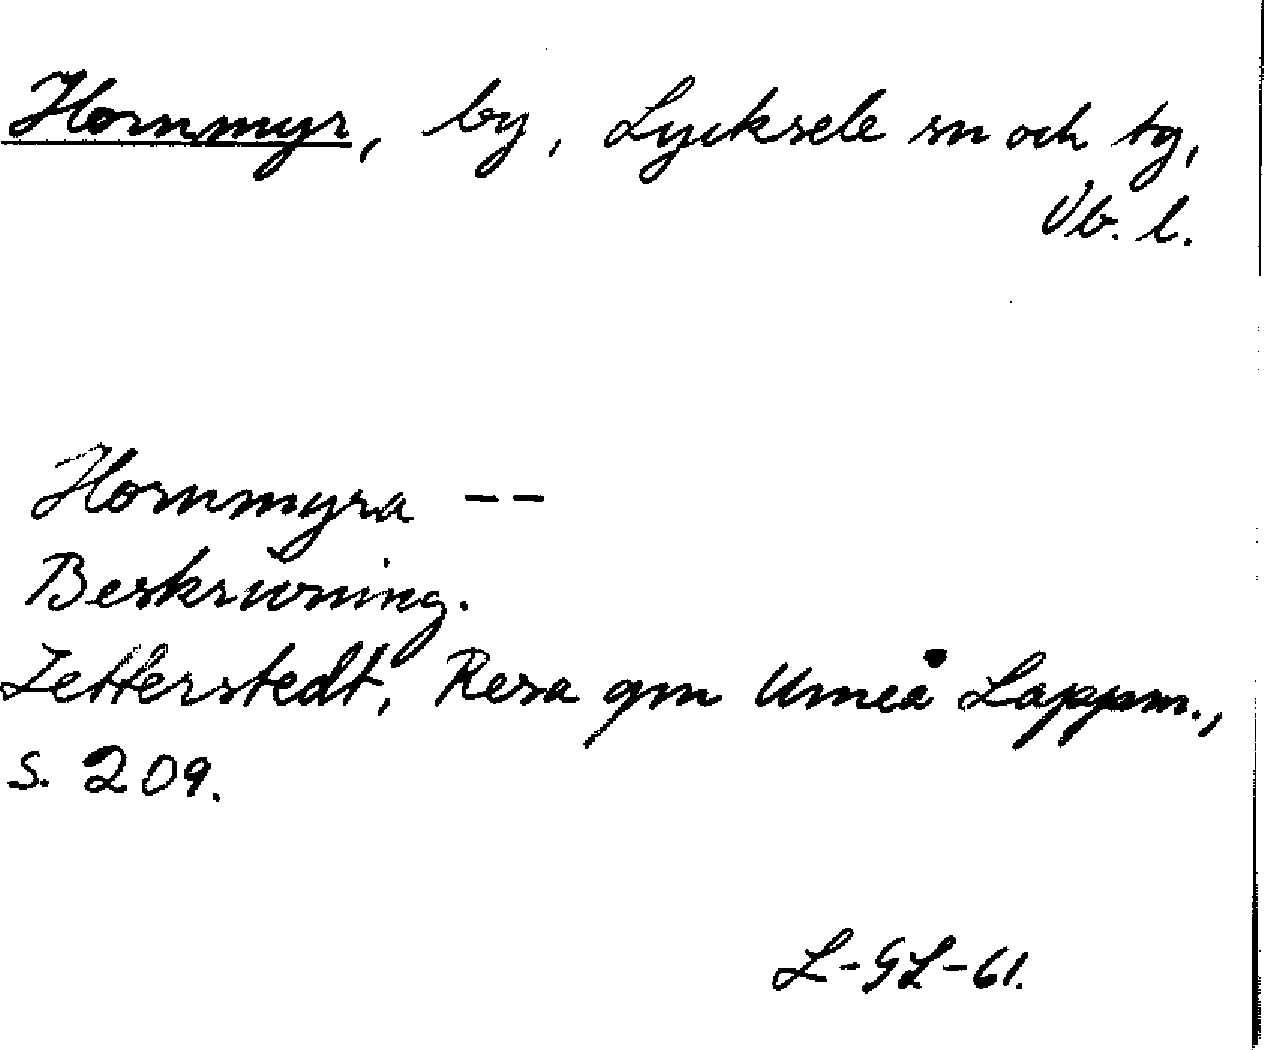 Hornmyr, by, Lycksele sn och tg,
Vb. l.
Hornmyra --
Beskrivning.
Zetterstedt, Resa gm Umeå Lappm.,
s. 209.
L-GL-61.